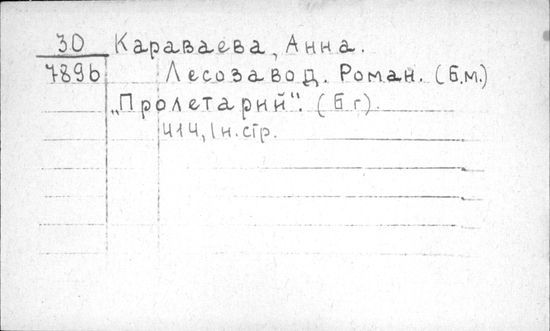 30 Караваева, Анна.
7896 Лесозавод. Роман. (б.м.)
„Пролетарий". (б г).
414, 1 н. стр.